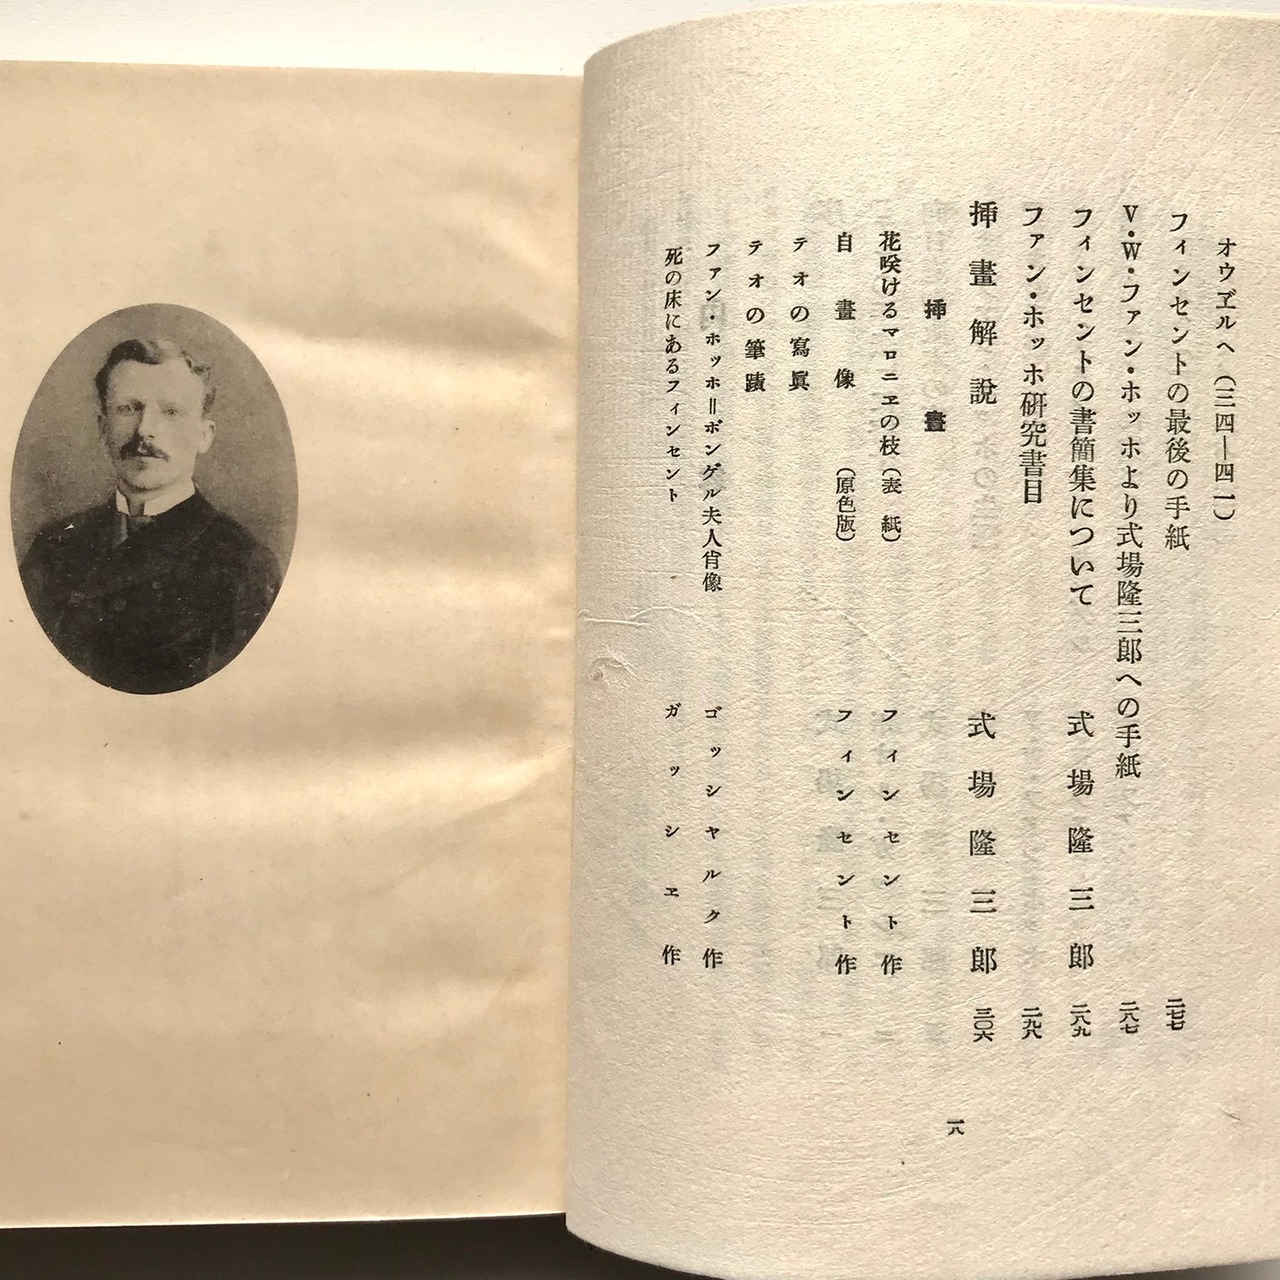 オウヱルヘ(三四—四一)
フィンセントの最後の手紙 二七七
V・W・ファン・ホッホより式場隆三郎への手紙 二八七
フィンセントの書簡集について 式場隆三郎 二八九
ファン・ホッホ研究書目 二九八
挿畫解說 式場隆三郎 三〇六
挿畫
花咲けるマロニヱの枝(表紙) フィンセント作
自畫像(原色版) フィンセント作
テオの寫眞
テオの筆蹟
ファン・ホッホ=ボンゲル夫人肖像 ゴッシヤルク作
死の床にあるフィンセント ガッシヱ作
一八